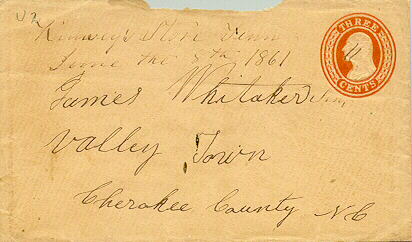 Store Tenn
June the 8th 1861
THREE
CENTS
James Whitaker
Valley Town
Cherokee County NC